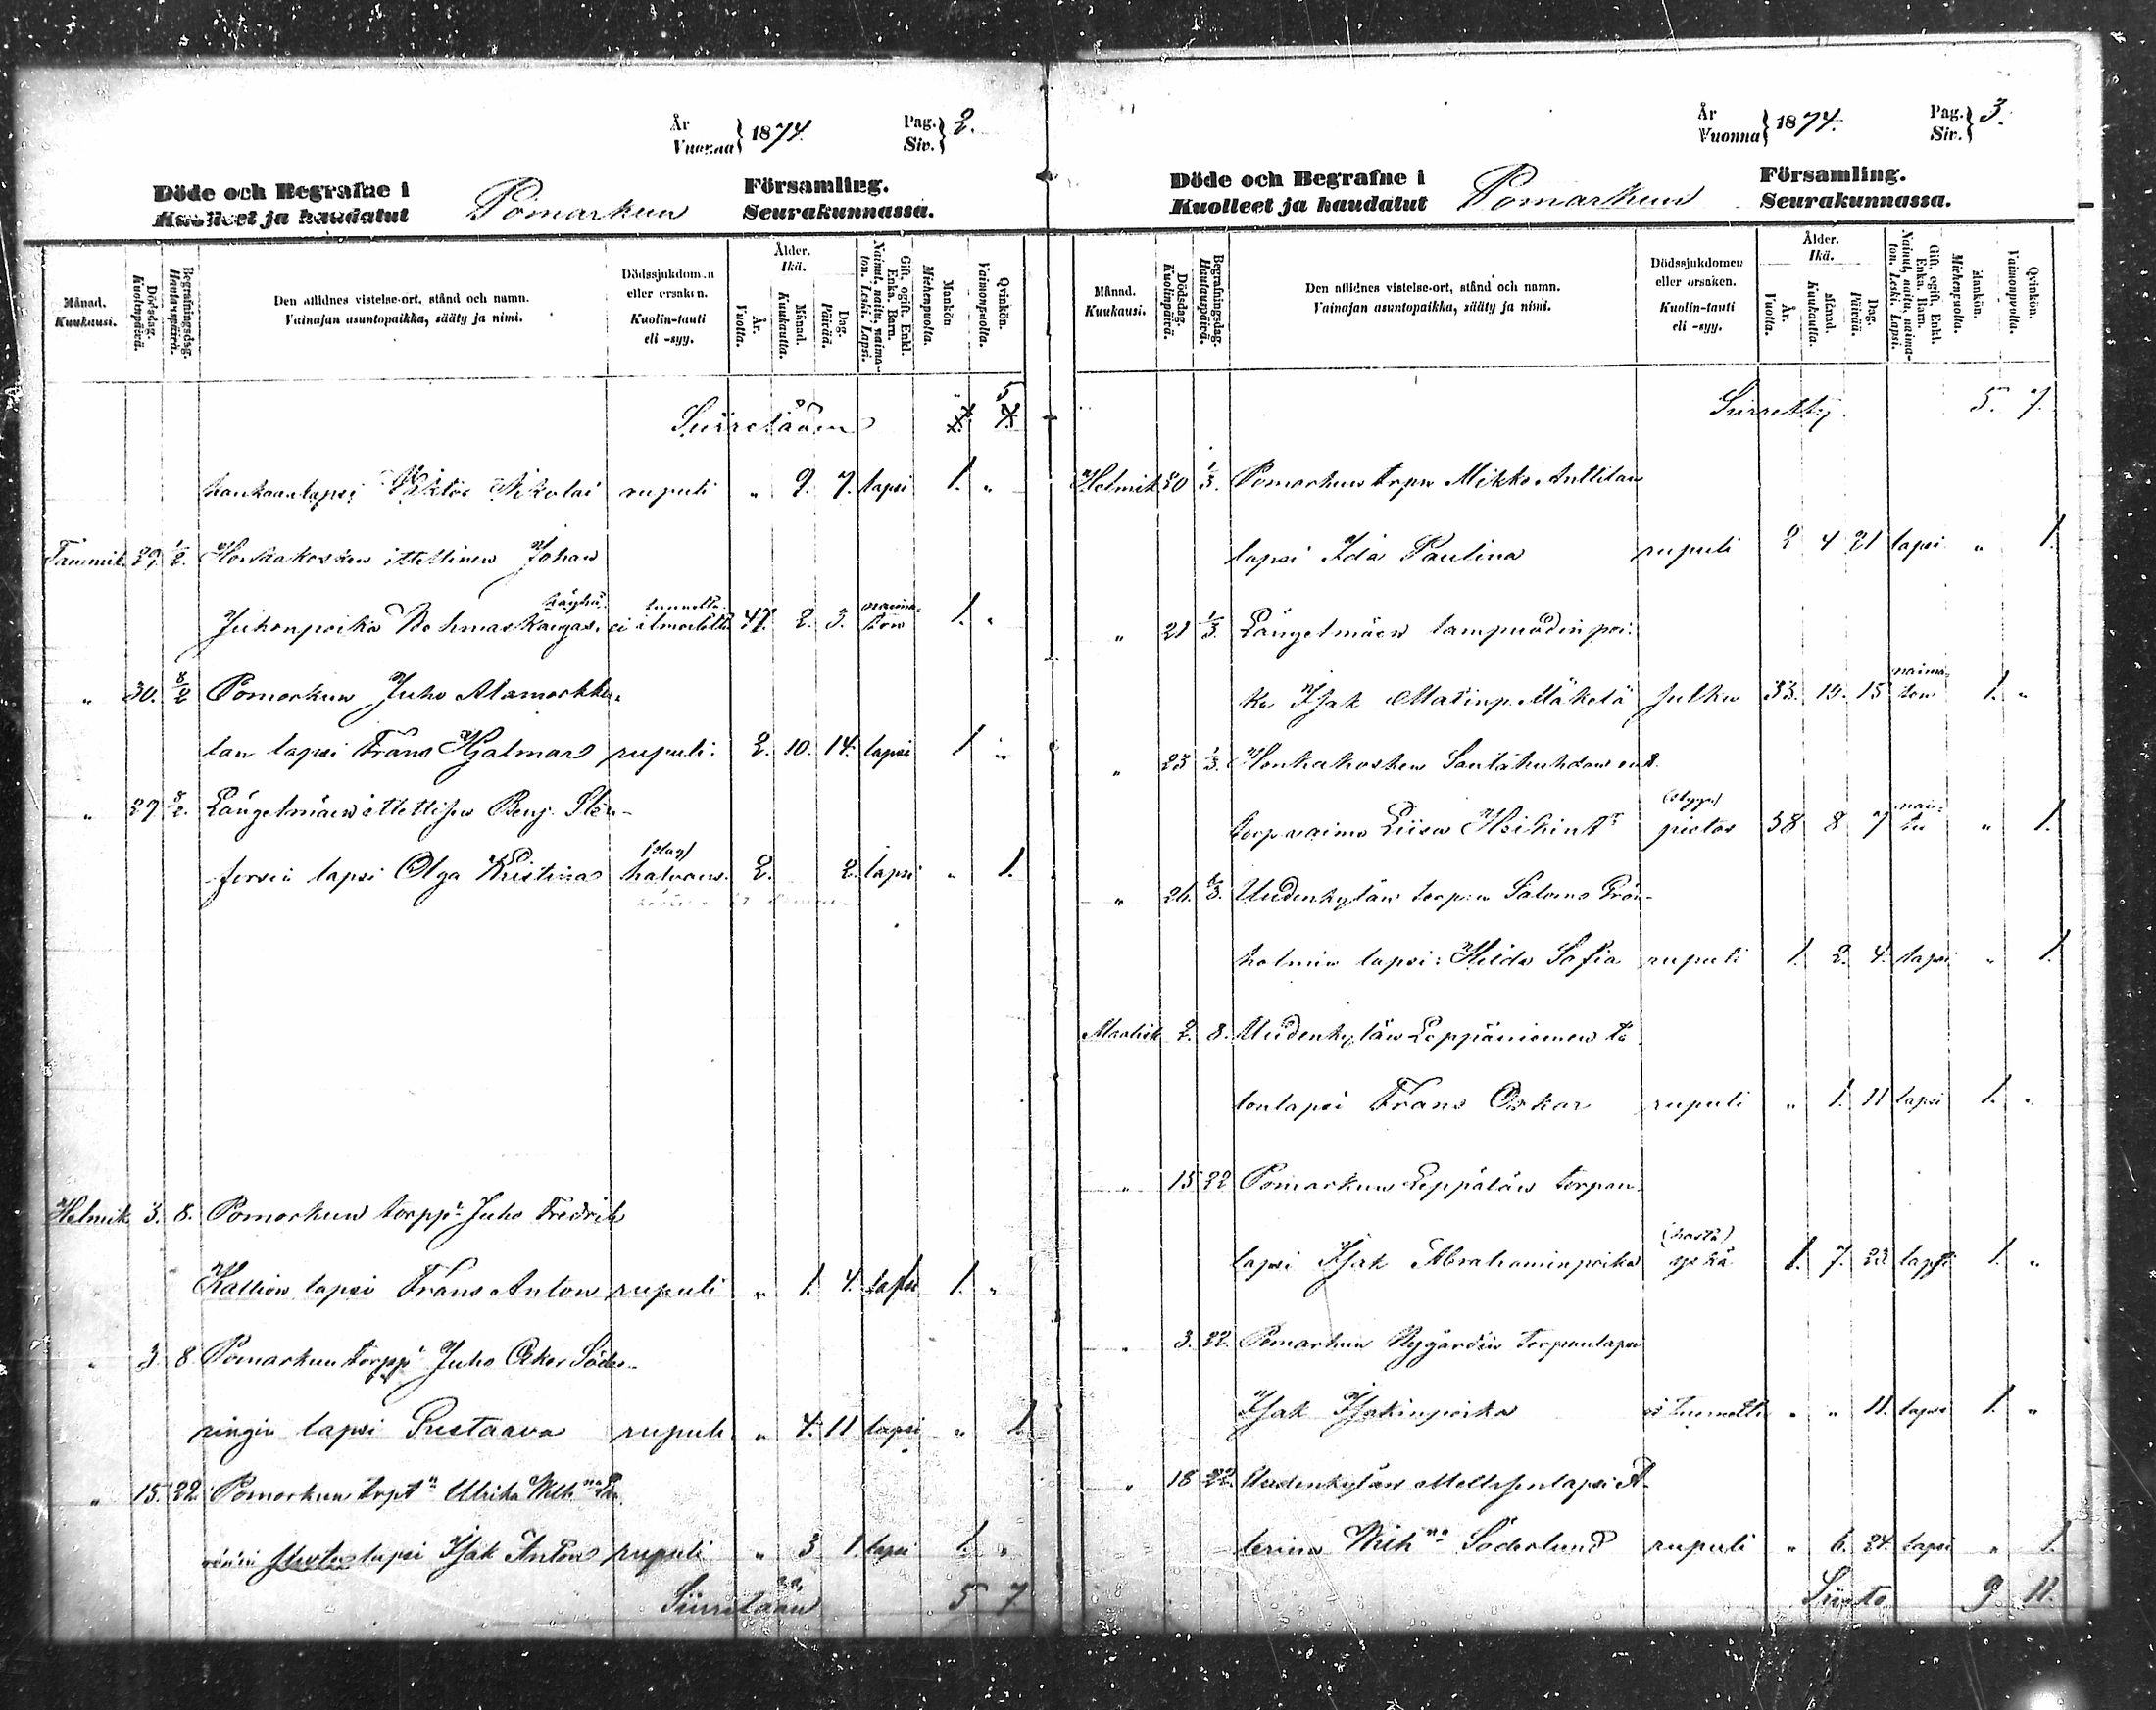 År
Vuonna } 1874.
Pag.
Siv. } 2.
Döde och Begrafne i
Kuolleet ja haudatut
Pomarkun
Församling.
Seurakunnassa.
Månad.
Kuukausi.
Dödsdag.
Kuolinpäivä.
Begrafningsdag.
Hautauspäivä.
Den aflidnes vistelse-ort, stånd och namn.
Vainajan asuntopaikka, sääty ja nimi.
Dödssjukdomen
eller orsaken.
Kuolin-tauti
eli -syy.
Ålder.
Ikä.
År.
Vuotta.
Månad.
Kuukautta.
Dag.
Päivää.
Gift, ogift, Enkl.
Enka, Barn.
Nainut, naitu, naima-
ton. Leski. Lapsi.
Mankön.
Miehenpuolta.
Qvinkön.
Vaimonpuolta.
Siirretään 5
lapsi Viktor Nikolai rupuli " 9. 7. lapsi 1. "
Tammik. 29. 1/2. Honkakosken ittellinen Johan
Juhonpoika ei 47. 2. 3. naima-
ton 1. "
" 30. 8/2 Pomarkun Juho Alamarkku-
lan lapsi Frans Hjalmar rupuli 2. 10. 14. lapsi 1 "
" 29. 8/2. Längelmäen ittellisen Benj. Sten-
forsin lapsi Olga Kristina (slag)
halvaus. 2. 2. lapsi " 1.
Helmik. 3. 8. Pomarkun torpp:n Juho Fredrik
Kallion lapsi Frans Anton rupuli " 1. 4. lapsi 1. "
" 3 8. Pomarkun torpp:n Juho Oskar Söder-
ringin lapsi Gustaava rupuli " 4. 11 lapsi " 1.
" 15. 22. Pomarkun Ulrika Wilh:na
lapsi Isak Anton rupuli " 3 1. lapsi 1. "
Siirretään 5 7
År
Vuonna } 1874.
Pag.
Siv. } 3.
Döde och Begrafne i
Kuolleet ja haudatut
Pomarkun
Församling.
Seurakunnassa.
Månad.
Kuukausi.
Dödsdag.
Kuolinpäivä.
Begrafningsdag.
Hautauspäivä.
Den aflidnes vistelse-ort, stånd och namn.
Vainajan asuntopaikka, sääty ja nimi.
Dödssjukdomen
eller orsaken.
Kuolin-tauti
eli -syy.
Ålder.
Ikä.
År.
Vuotta.
Månad.
Kuukautta.
Dag.
Päivää.
Gift, ogift, Enkl.
Enka, Barn.
Nainut, naitu, naima-
ton. Leski. Lapsi.
Mankön.
Miehenpuolta.
Qvinkön.
Vaimonpuolta.
Siirretty 5. 7.
Helmik. 20 1/3. Pomarkun torpn Mikko Anttilan
lapsi Ida Paulina ruputi 2 4 21 lapsi " 1.
" 21 1/3. Längelmäen lampuodin poi-
ka Isak Matinp. Mäkelä 33. 10. 15 naima-
ton 1. "
" 23 1/3. Honkakosken Santakuhdan
torp vaimo Liisa Heikint:r pistos 38 8 7 nai-
tu " 1.
" 26. 8/3. Uudenkylän torp:n Salomo Grön-
holmin lapsi: Hilda Sofia ruputi 1. 2. 4. lapsi " 1.
Maalisk. 2. 8. Uudenkylän Leppäniemen ta-
lonlapsi Frans Oskar ruputi " 1. 11 lapsi 1. "
" 15 22 Pomarkun Leppälän torpan
lapsi Isak Abrahaminpoika (hosta)
yskä 1. 7. 22 lapsi 1. "
" 3. 22. Pomarkun Nygårdin torpanlapsi
Isak Isakinpoika ei tunnettu " " 11. lapsi 1. "
" 18 22. Uudenkylän lapsi A-
Wilh:na Söderlund ruputi " 6. 24. lapsi " 1.
Siirto 9 11.